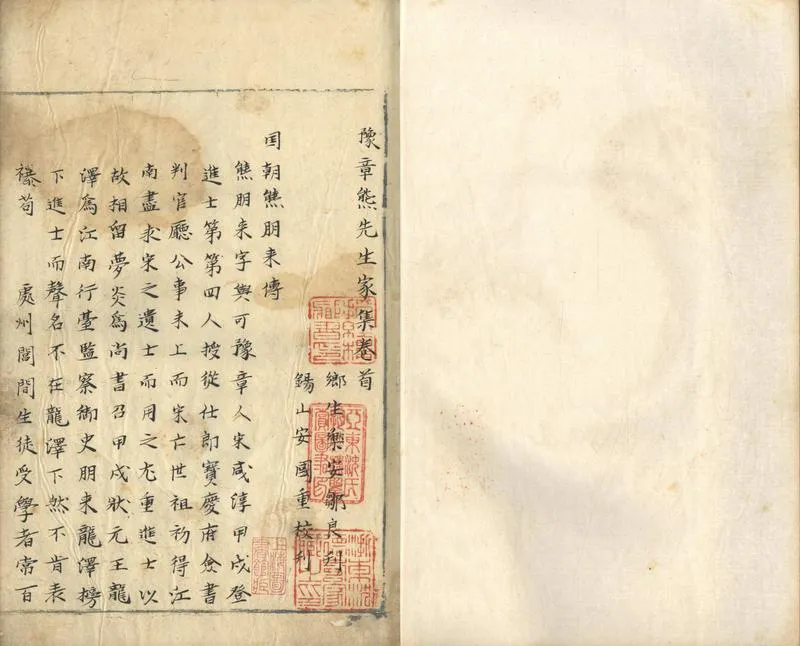 豫章熊先生家集卷首
鄉生樂安鄒良刋
錫山安國重校刋
国朝熊朋来傳
熊朋来字與可豫章人宋咸淳甲戍登
進士第第四人授從仕郎寶慶府僉書
判官廳公事未上而宋亡世祖初得江
南盡求宋之遺士而用之尤重進士以
故相留夢炎爲尚書召甲戍狀元王龍
澤爲江南行臺監察御史朋来龍澤榜
下進士而聲名不在龍澤下然不肯表
襮苟 處州閭閻生徒受學者常百